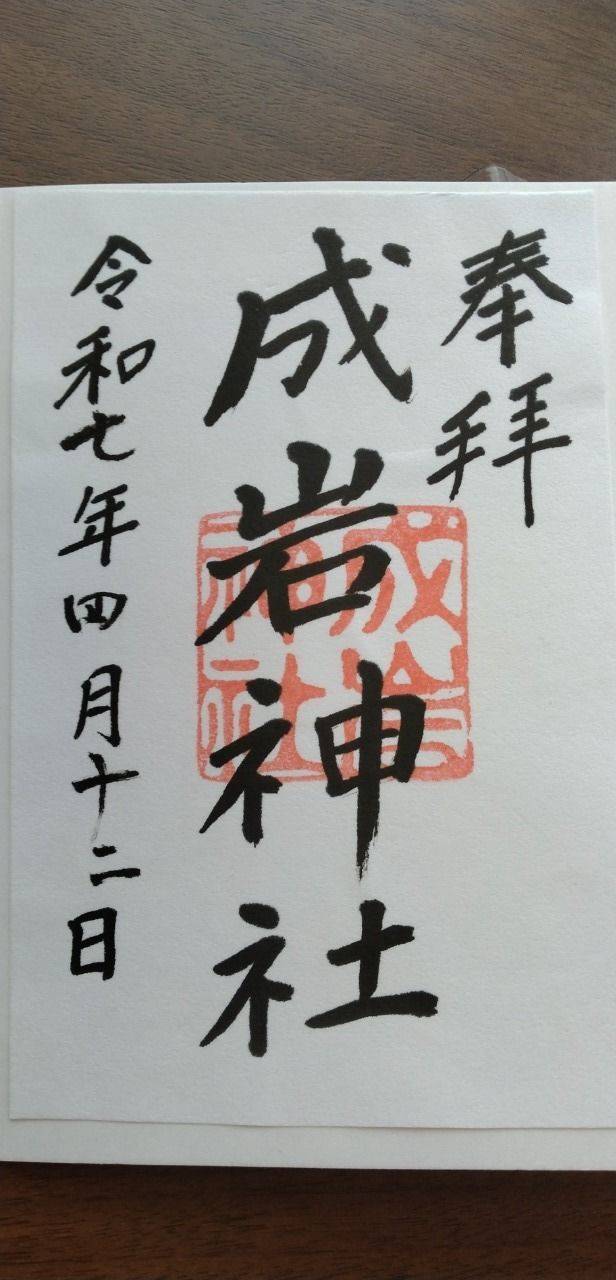 奉拝
成岩神社
令和七年四月十二日
成岩
神社